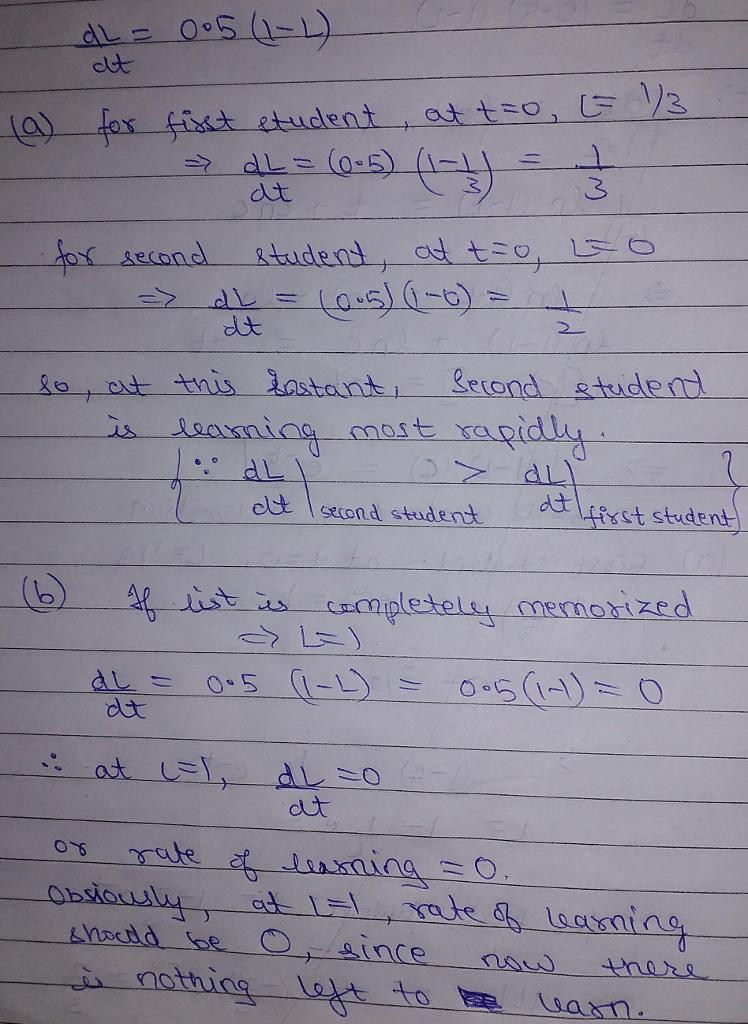 dL/dt = 0.5 (1-L)
(a) for first student, at t=0, L= 1/3
⇒ dL/dt = (0.5) (1-1/3) = 1/3
for second student, at t=0, L=0
=> dL/dt = (0.5) (1-0) = 1/2
so, at this instant, second student
is learning most rapidly.
{∵ dL/dt)second student > dL/dt)first student}
(b) If list is completely memorized
=> L=1
dL/dt = 0.5 (1-L) = 0.5(1-1) = 0
∴ at L=1, dL/dt =0
or rate of learning = 0.
Obviously, at L=1, rate of learning
should be 0, since now there
is nothing left to learn.